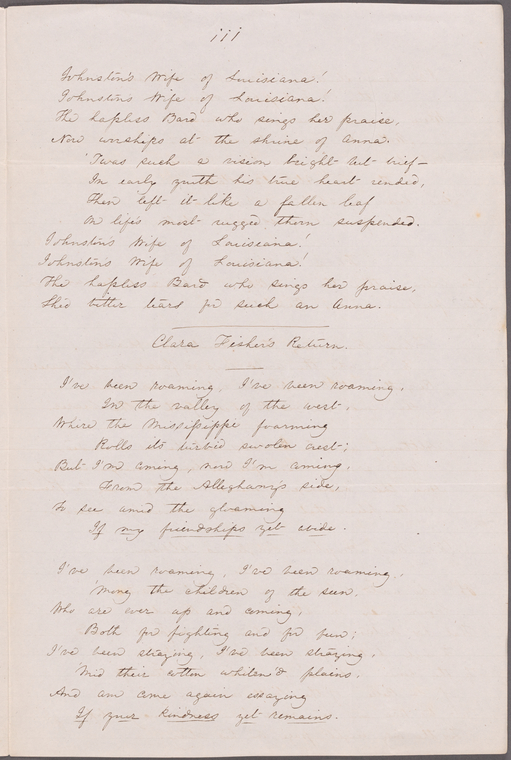 iii
Johnston's Wife of Louisiana!
Johnston's Wife of Louisiana!
The hapless Bard who sings her praise,
Now worships at the shrine of Anna.
'Twas such a vision bright but brief—
In early youth his true heart rended,
Then left it like a fallen leaf
On life's most rugged thorn suspended.
Johnston's Wife of Louisiana!
Johnston's Wife of Louisiana!
The hapless Bard who sings her praise,
Shed bitter tears for such an Anna.
Clara Fisher's Return.
I've been roaming, I've been roaming,
In the valley of the west,
Where the Mississippi foarming
Rolls its turbid swolen crest;
But I'm coming, now I'm coming,
From the Alleghany's side,
To see amid the gloaming
If my friendships yet abide.
I've been roaming, I've been roaming,
'Mong the children of the sun,
Who are ever up and coming,
Both for fighting and for fun;
I've been straying, I've been straying,
'Mid their cotton whiten'd plains.
And am come again essaying
If your kindness yet remains.